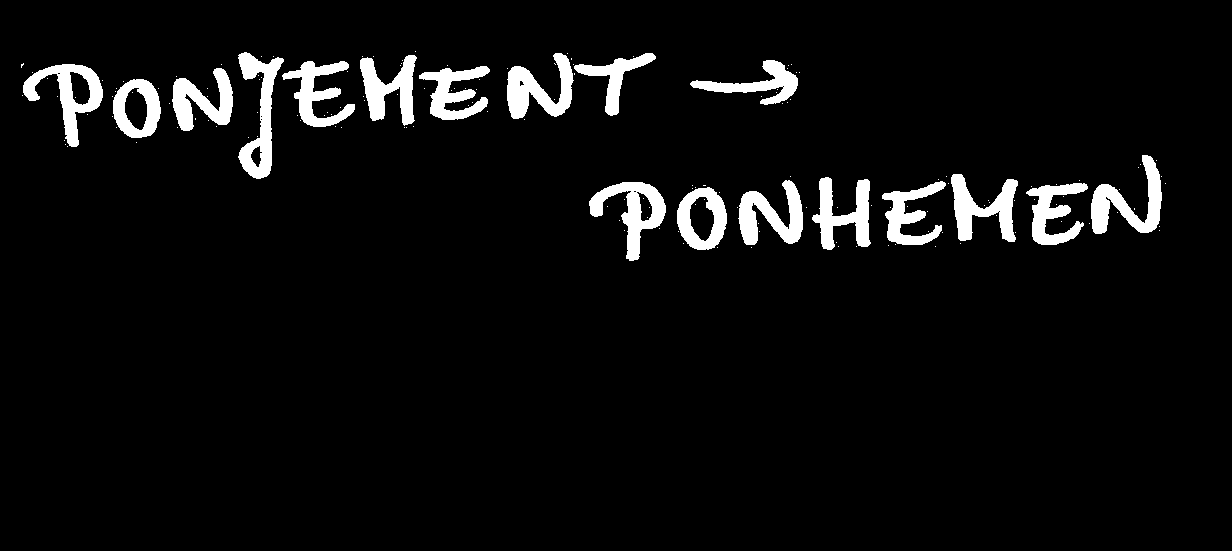 PONJEMENT →
PONHEMEN